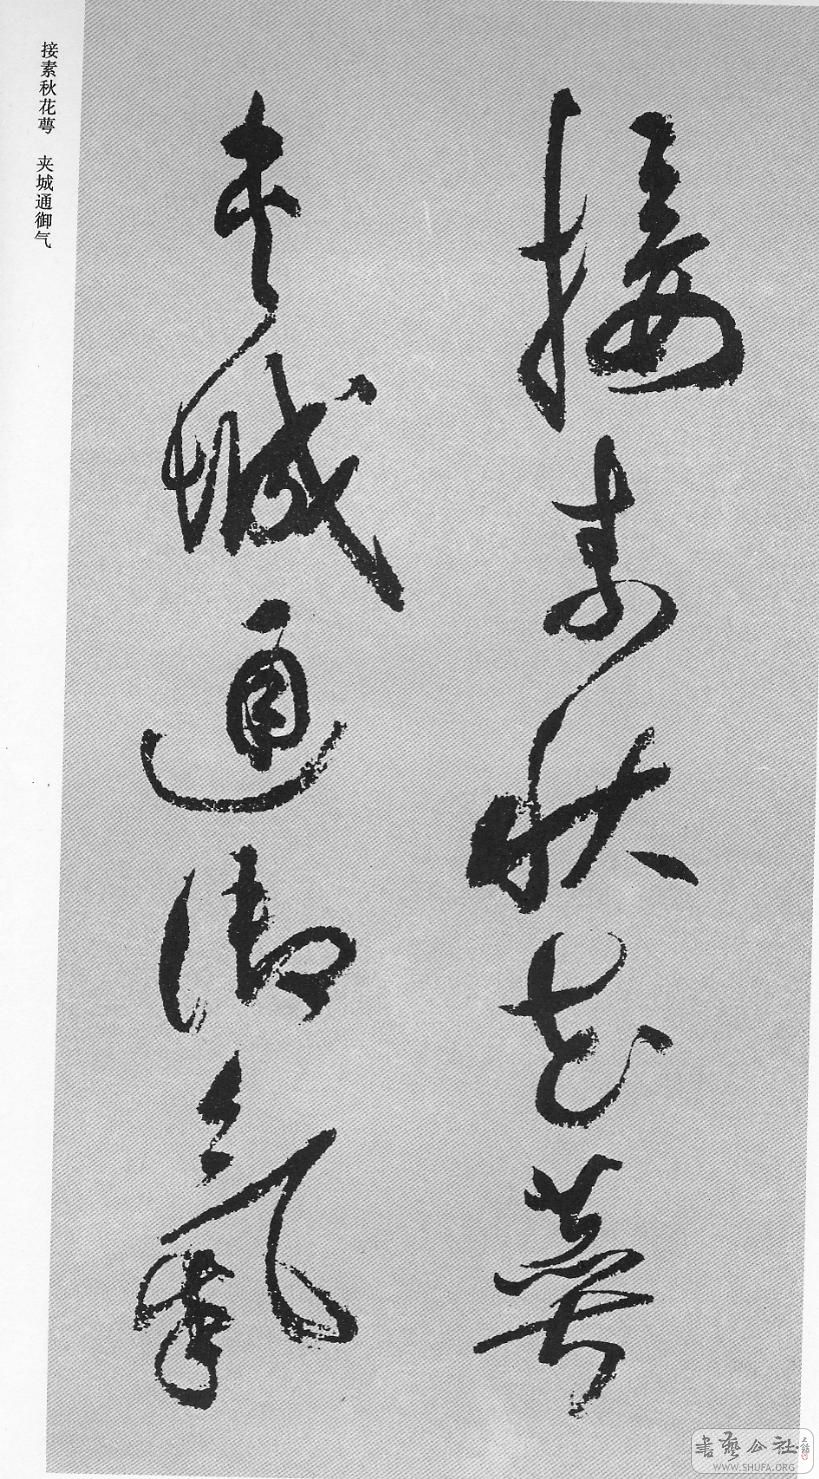 接素秋花萼
夹城通御气
接素秋花萼 夹城通御气
書藝公社
WWW.SHUFA.ORG